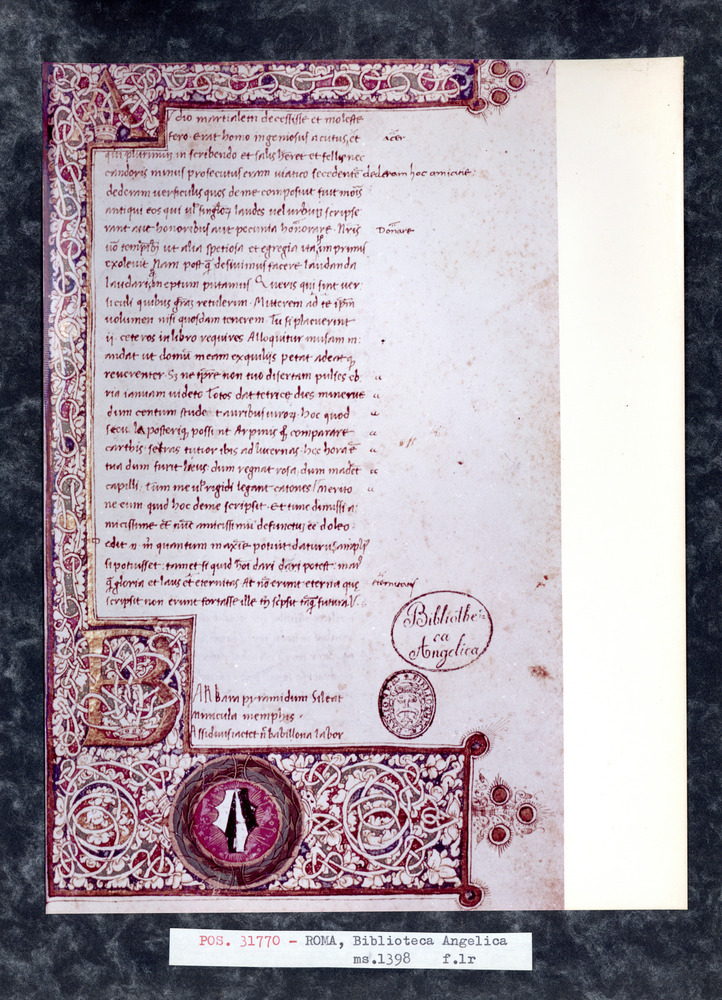 A
Vdio martialem decessisse et moleste
fero. erat homo ingeniosus acutus, et acer
qui plurimum in scribendo et salis heret et fellis, nec
candoris minus prosecutus eram viatico secedente dederam hoc amicitie
dederam versiculis quos de me composuit fuit moris
antiqui eos qui vel singlorum laudes vel urbium scripse
rant aut honoribus aut pecunia honorare. Nris Donare
vo temporibus ut alia spetiosa et egregia ita, in primis
exolevit Nam post q desivimus facere laudanda
laudari, ineptum putamus Queris qui sint ver
siculi quibus gras retulerim. Mitterem ad te ipm
volumen nisi quosdam tenerem. Tu si placuerint
ii ceteros in libro requires Alloquitur musam m
andat ut domu meam exquiliis petat adeat q
reverenter Sz ne tpre non tuo disertam pulses eb
ria ianuam videto Totos dat tetrice dies minerve
dum centum studet auribus viroru. hoc quod
secu la posteriq possint Arpinis q comparare
carthis seras tutior ibis ad lucernas. hec hora e
tua dum furit lieus. dum regnat rosa, dum madet
capilli, tum me vel rigidi legant catones merito
ne eum quid hoc de me scripsit. et tunc dimissi a
micissime et nuc amicissimu defunctus ee doleo
edit n m quantum maxie potuit daturus ampli
si potuisset. tamet si quid hoi dari dari potest. mai
q gloria et laus et eternitas At no erunt eterna que
scripsit non erunt fortasse ille tn scpsit tanq futura V.
Bibliothe
ca
Angelica
B
ARbara pyramidum Sileat
miracula memphis.
Assiduus iactet n babillona labor
POS. 31770 - ROMA, Biblioteca Angelica
ms.1398 f.1r